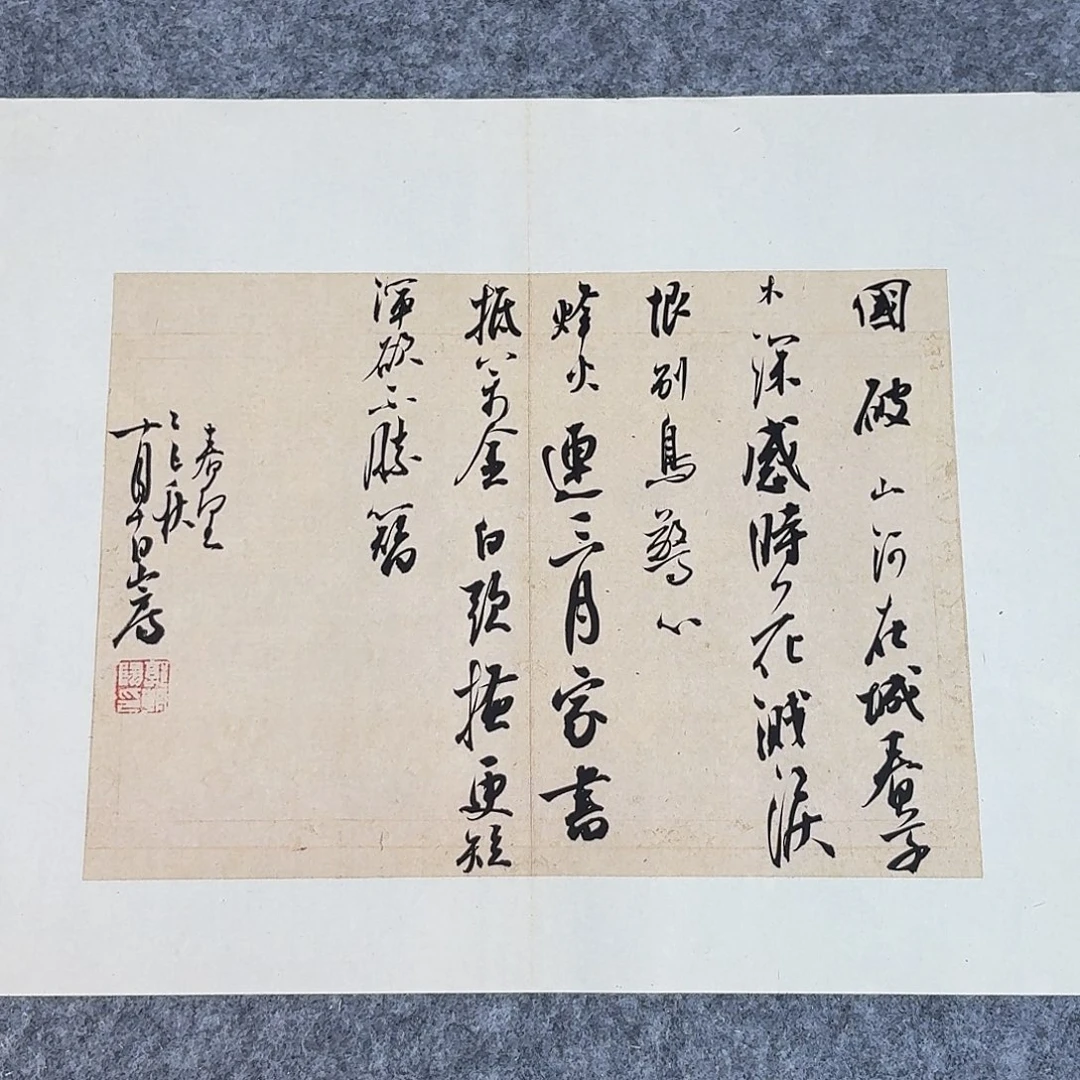 國破山河在城春草
木深感時花濺淚
恨別鳥驚心
烽火連三月家書
抵萬金白頭搔更短
渾欲不勝簪
春望
乙巳秋
十月